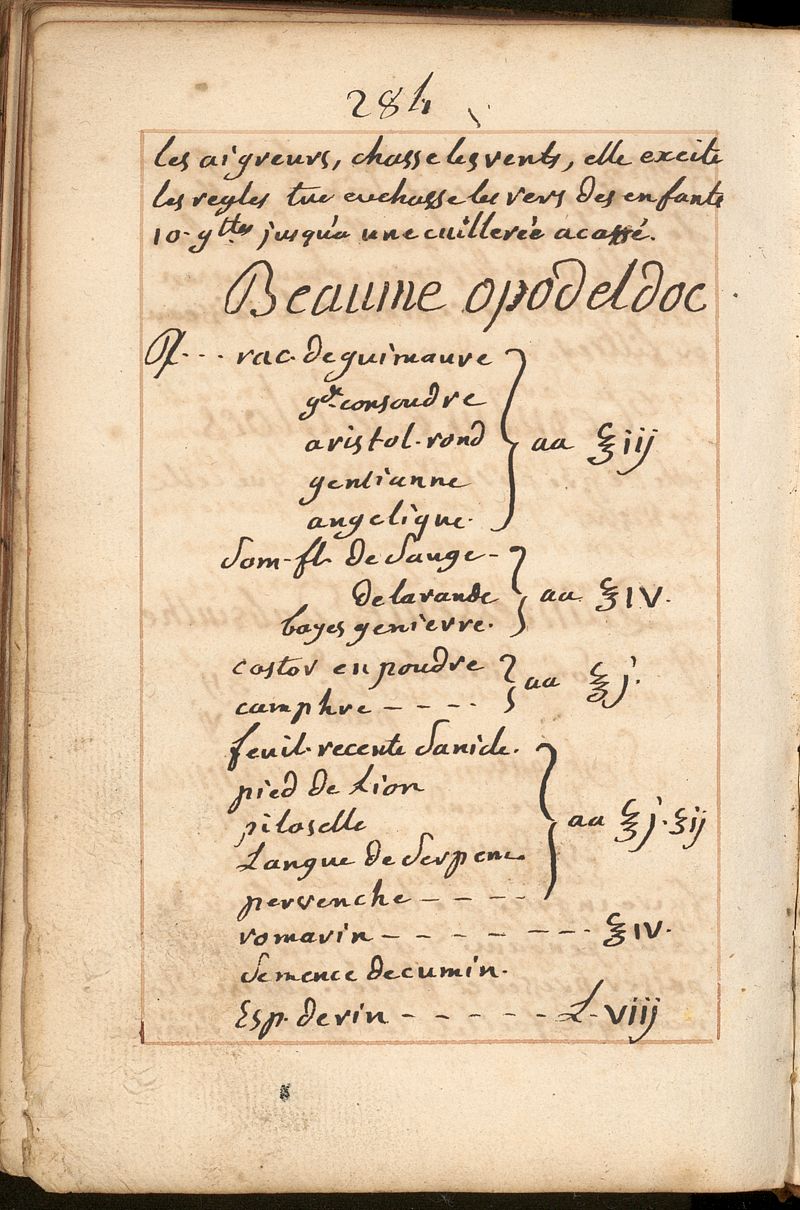 284
les aigreurs, chasse les vents, elle excite
les regles tue euchasse les vers des enfants
10 gttes jusqu'a une cuillereé a caffé.
Beaume opodeldoc
℞ - - - rac. de guimauve
gde consoudre
aristol. rond } aa ℥ iij
gentianne
angelique.
som. fl. de sauge -
de lavande } aa ℥ IV.
bayes genievre.
castor en poudre } aa ℥ j.
camphre - - - -
feuil. recente sanicle.
pied de Lion
piloselle } aa ℥ j. ʒ ij
Langue de serpent
pervenche - - - -
romarin - - - - - - - ℥ IV.
semence de cumin.
Esp. de vin - - - - - L. viij